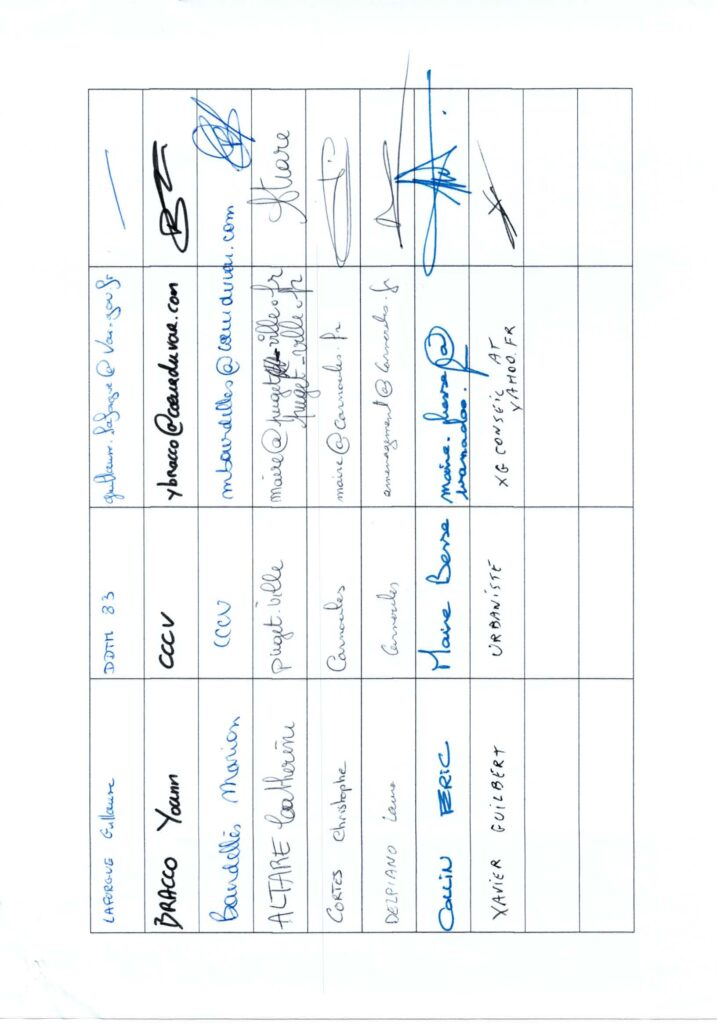 LAFORGUE Guillaume DDTM 83 guillaume.laforgue@var.gouv.fr
BRACCO Yoann CCCV ybracco@coeurduvar.com
Bourdelles Marion CCCV mbourdelles@coeurduvar.com
ALTARE Catherine Puget-Ville maire@puget-ville.fr
puget-ville.fr
CORTES Christophe Carnoules maire@carnoules.fr
DELPIANO Laura Carnoules amenagement@carnoules.fr
COLLIN ERIC Maire Besse maire.besse@
wanadoo.fr
XAVIER GUILBERT URBANISTE XG CONSEIL AT
YAHOO.FR